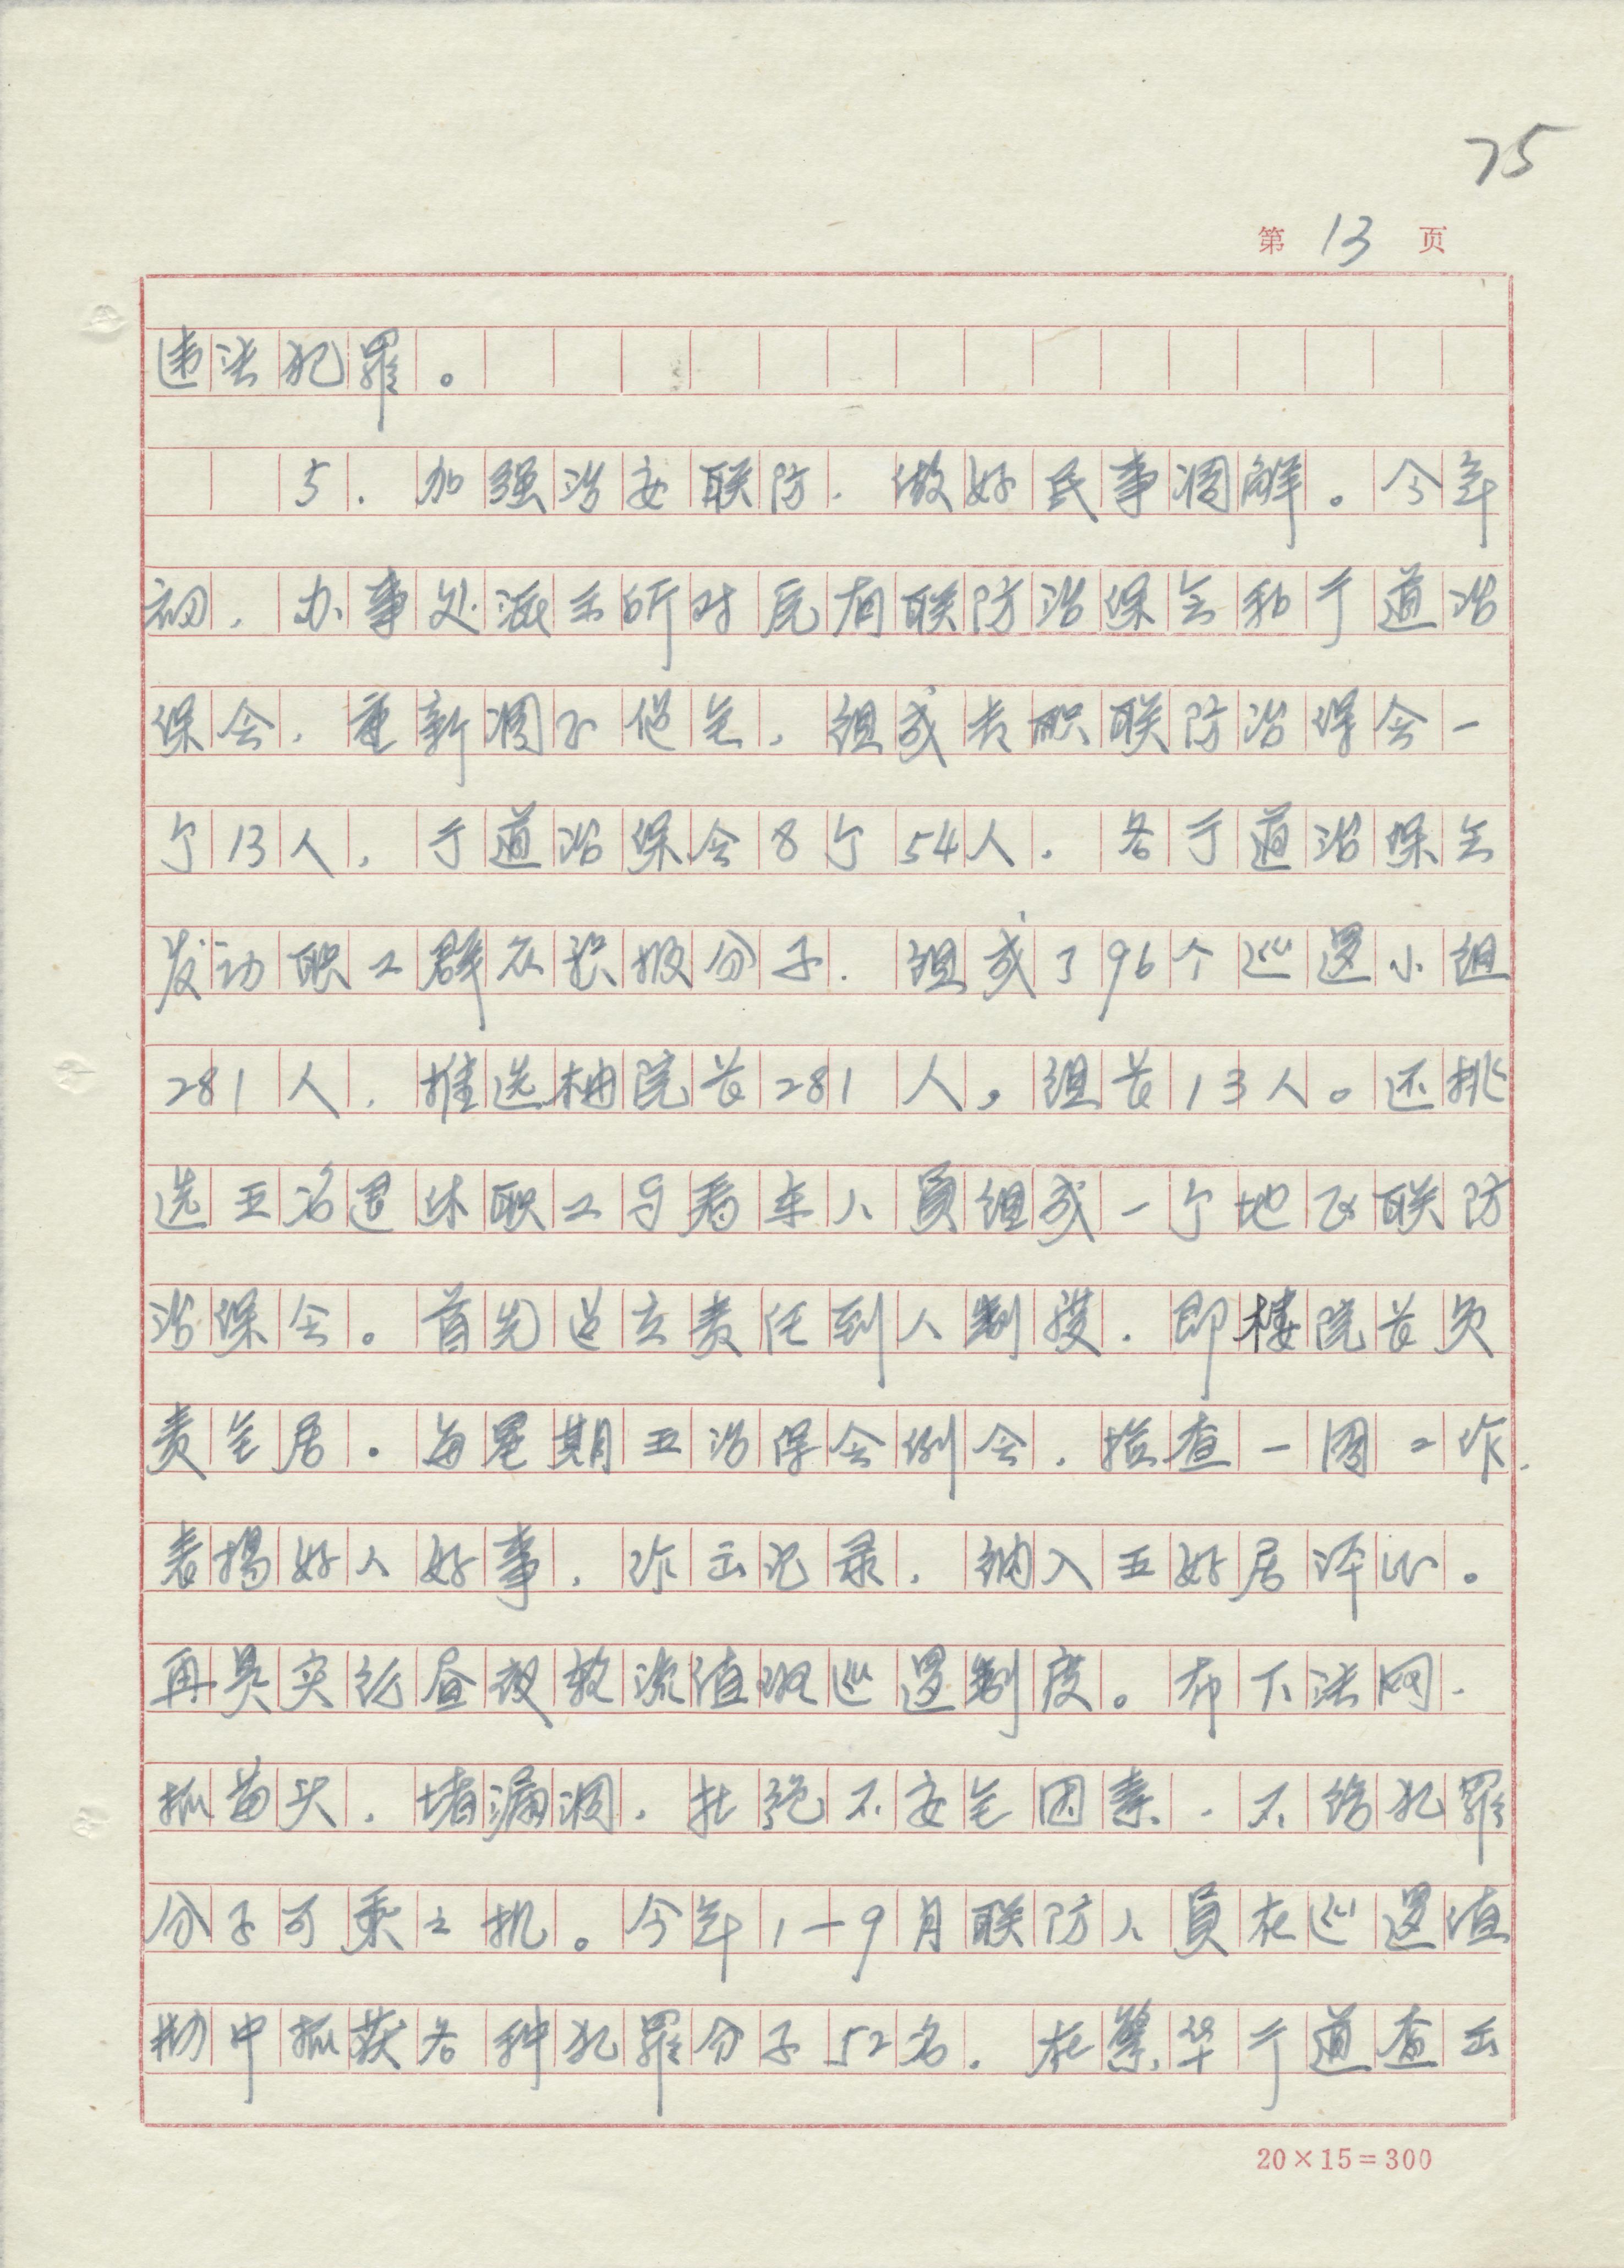 75
第 13 页
违法犯罪。
5.加强治安联防.做好民事调解。今年
初,办事处派出所对原有联防治保会和亍道治
保会,重新调正健全,组成专职联防治保会一
个13人,亍道治保会8个54人.各亍道治保会
发动职工群众积极分子.组成了96个巡逻小组
281人,推选楼院长281人,组长13人。还挑
选五名退休职工与看车人员组成一个地区联防
治保会。首先建立责任到人制度.即楼院长负
责全居.每星期五治保会例会.检查一周工作.
表揚好人好事,作出记录,纳入五好居评比。
再是实行昼夜轮流值班巡逻制度。布下法网.
抓苗头,堵漏洞.杜绝不安全因素.不给犯罪
分子可乘之机。今年1—9月联防人員在巡逻值
勤中抓获各种犯罪分子52名.在繁华亍道查出
20×15=300